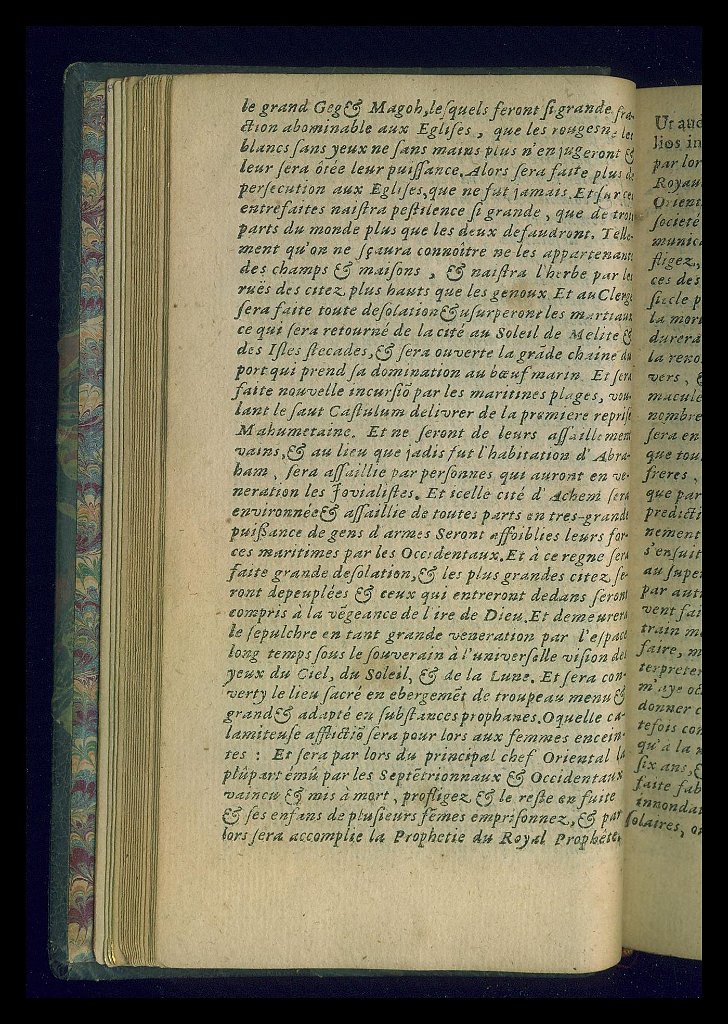 le grand Geg & Magoh, lesquels feront si grande fra-
ction abominable aux Eglises, que les rouges n, les
blancs sans yeux ne sans mains plus n'en jugeront &
leur sera ôtée leur puissance. Alors sera faite plus de
persecution aux Eglises, que ne fut jamais. Et sur ces
entrefaites naistra pestilence si grande, que de trois
parts du monde plus que les deux defaudront. Telle-
ment qu'on ne sçaura connoître ne les appartenants
des champs & maisons, & naistra l'herbe par les
rues des citez plus hauts que les genoux Et au Clergé
sera faite toute desolation & usurperont les martiaux
ce qui sera retourné de la cité au Soleil de Melite &
des Isles stecades, & sera ouverte la grāde chaine du
port qui prend sa domination au bœuf marin Et sera
faite nouvelle incursiō par les maritines plages, vou-
lant le saut Castulum delivrer de la premiere reprise
Mahumetaine. Et ne seront de leurs assaillement
vains, & au lieu que jadis fut l'habitation d'Abra-
ham, sera assaillie par personnes qui auront en ve-
neration les Jovialistes. Et icelle cité d'Achem sera
environnée & assaillie de toutes parts en tres-grande
puissance de gens d'armes Seront affoiblies leurs for-
ces maritimes par les Occidentaux. Et à ce regne sera
faite grande desolation, & les plus grandes citez se-
ront depeuplées & ceux qui entreront dedans seront
compris à la vēgeance de l'ire de Dieu. Et demeurera
le sepulchre en tant grande veneration par l'espace
long temps sous le souverain à l'universelle vision des
yeux du Ciel, du Soleil, & de la Lune. Et sera con-
verty le lieu sacré en ebergemēt de troupeau menu &
grand & adapté en substances prophanes. O quelle ca-
lamiteuse afflictiō sera pour lors aux femmes encein-
tes : Et sera par lors du principal chef Oriental la
plûpart émû par les Septētrionnaux & Occidentaux
vaincu & mis à mort, profligez & le reste en fuite
& ses enfans de plusieurs fēmes emprisonnez, & par
lors sera accomplie la Prophetie du Royal Prophete,
Ut aud
lios in
par lor
Royau
Orient
societé
munica
fligez,
ces des
siecle p
la mor
durera
la reno
vers, &
macule
nombre
sera en
que tou
freres,
que par
predicti
nement
s'ensuit
au super
par aut
vent fai
train m
faire, m
terpreter
m'aye oc
donner c
tefois con
qu'à la n
six ans, &
faite fab
innondat
solaires, o